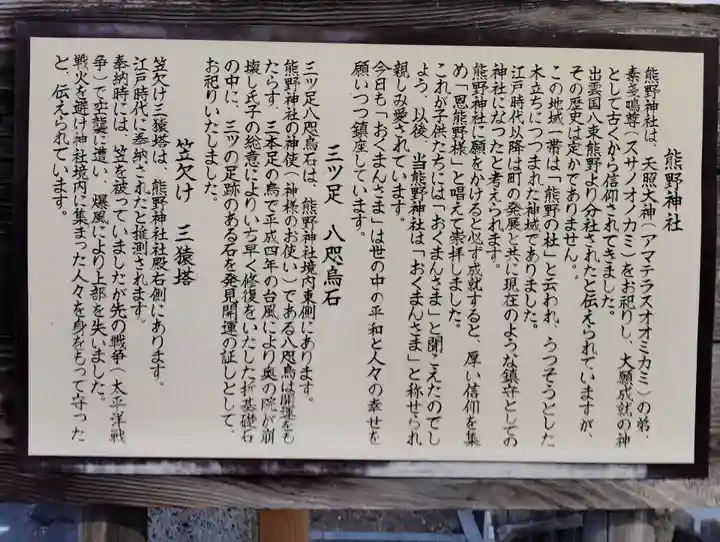 熊野神社
熊野神社は、天照大神(アマテラスオオミカミ)の弟、
素戔嗚尊(スサノオノカミ)をお祀りし、大願成就の神
として古くから信仰されてきました。
出雲国八束熊野より分社されたと伝えられていますが、
その歴史は定かでありません。
この地域一帯は「熊野の杜」と云われ、うっそうとした
木立ちにつつまれた神域でありました。
江戸時代以降は町の発展と共に現在のような鎮守としての
神社になったと考えられます。
熊野神社に願をかけると必ず成就すると、厚い信仰を集
め「恩熊野様」と唱えて崇拝しました。
これが子供たちには「おくまんさま」と聞こえたのでし
ょう、以後、当熊野神社は「おくまんさま」と称せられ
親しみ愛されています。
今日も「おくまんさま」は世の中の平和と人々の幸せを
願いつつ鎮座しています。
三ツ足 八咫烏石
三ツ足八咫烏石は、熊野神社境内東側にあります。
熊野神社の神使(神様のお使い)である八咫烏は開運をも
たらす、三本足の烏で平成四年の台風により奥の院が崩
壊し氏子の総意によりいち早く修復をいたした折基礎石
の中に、三ツの足跡のある石を発見開運の証しとして、
お祀りいたしました。
笠欠け 三猿塔
笠欠け三猿塔は、熊野神社社殿右側にあります。
江戸時代に奉納されたと推測されます。
奉納時には、笠を被っていましたが先の戦争(太平洋戦
争)で空襲に遭い、爆風により上部を失いました。
戦火を避け神社境内に集まった人々を身をもって守った
と、伝えられています。